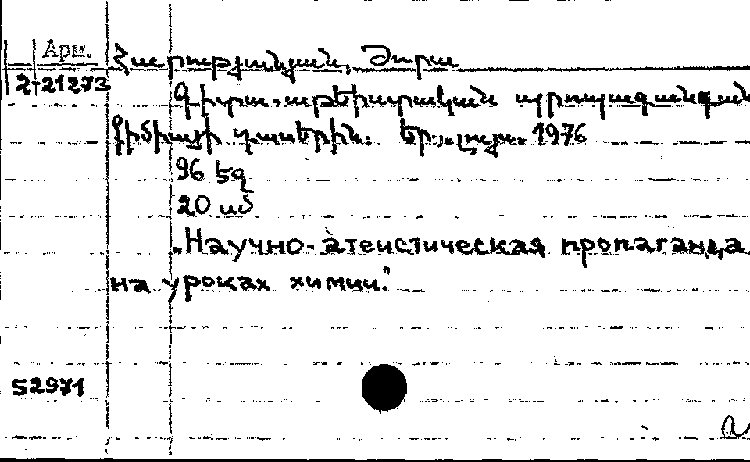 Арм.
Հարությունյան, Ժորա
2-21273
Գիտա-աթեիստական պրոպագանդան
քիմիայի դասերին. Եր., Լույս. 1976
96 էջ
20 սմ
„Научно-атеистическая пропаганда
на уроках химии."
52971